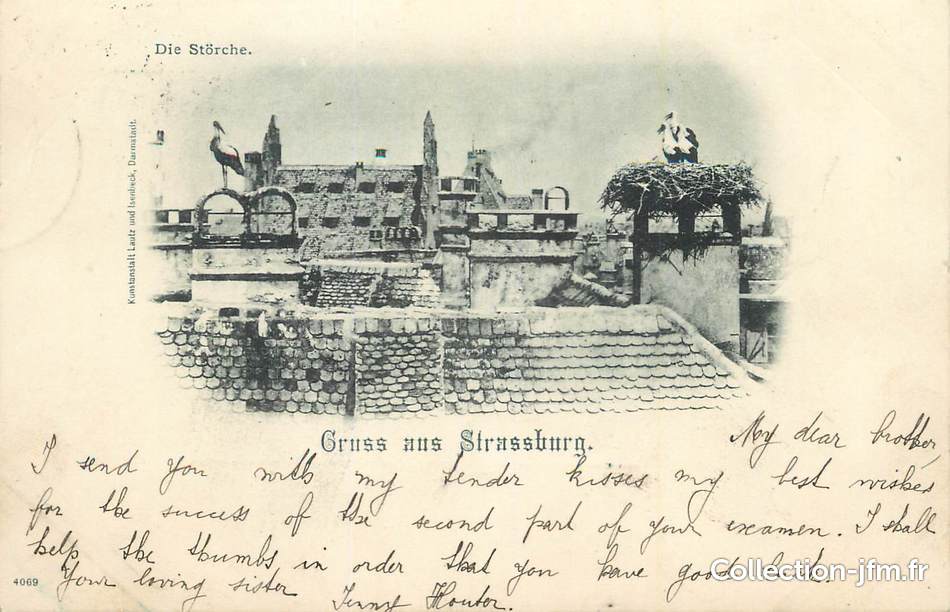 Die Störche.
Kunstanstalt Lautz und Isenbeck, Darmstadt.
Gruss aus Strassburg.
My dear brother,
I send you with my tender kisses my best wishes
for the success of the second part of your examen. I shall
help the thumbs in order that you have good luck.
Your loving sister
4069
Collection-jfm.fr